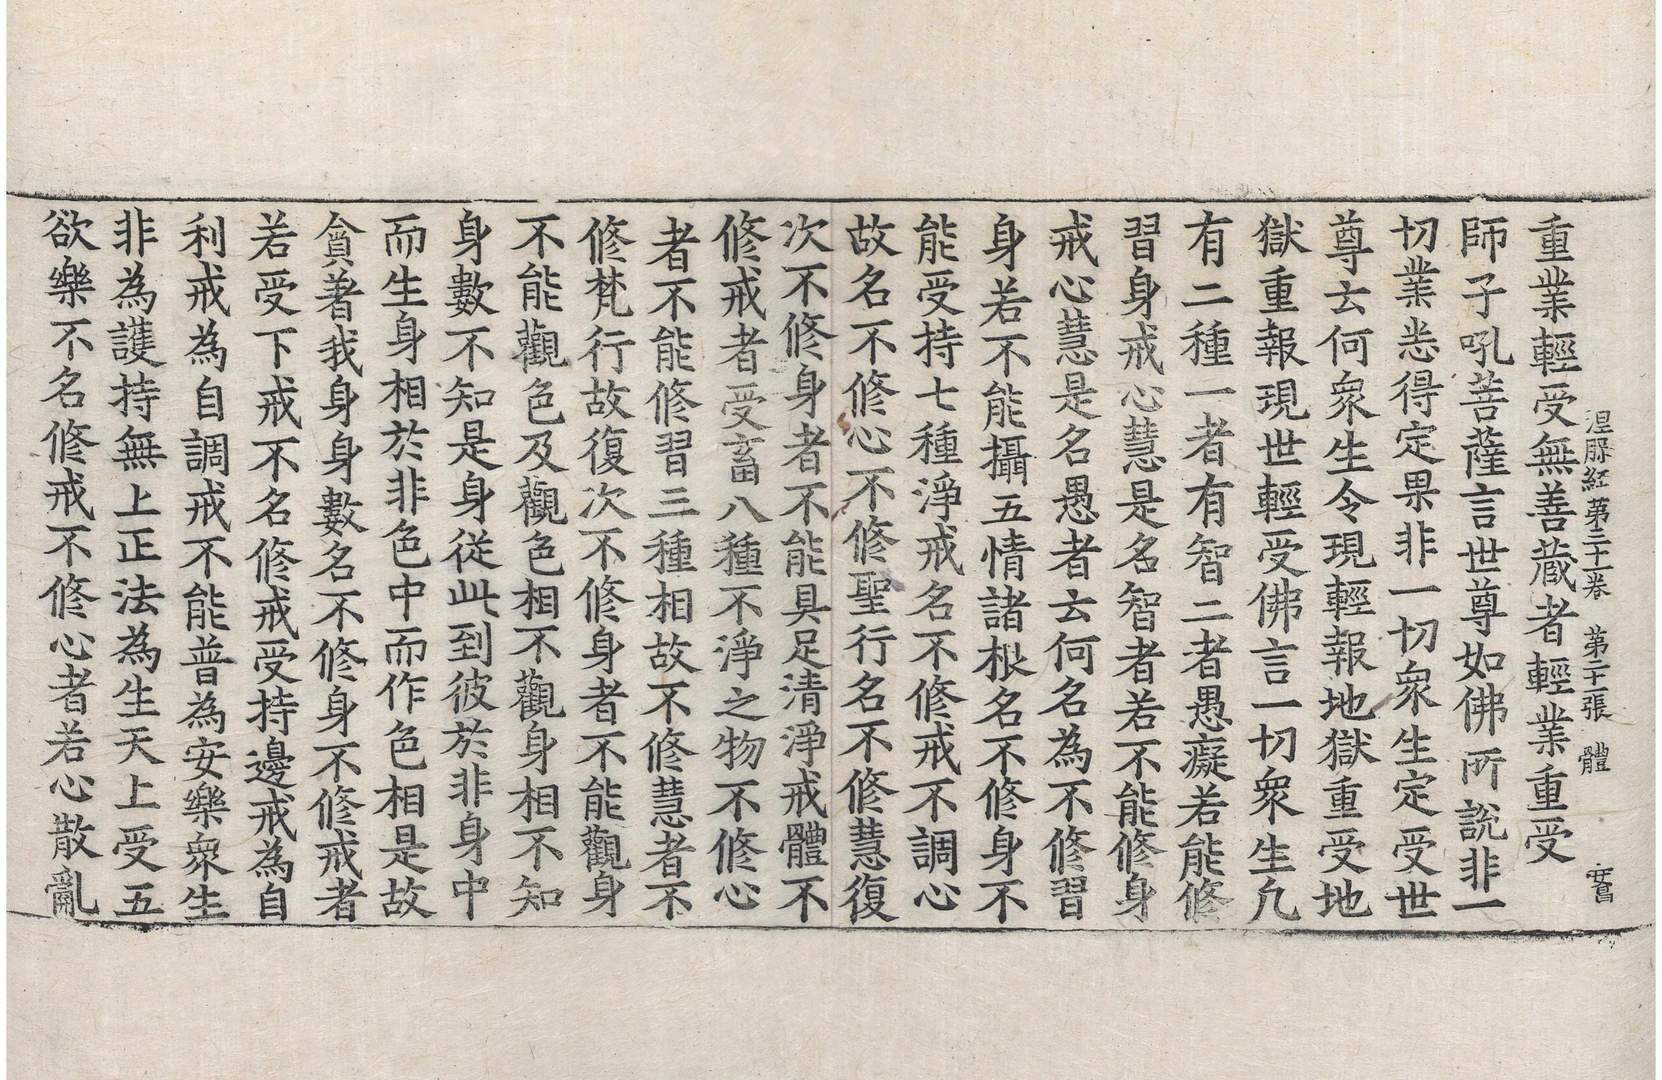 涅槃經第三十一卷　第二十張　體
重業輕受無善蔵者輕業重受
師子吼菩薩言世尊如佛所說非一
切業悉得定果非一切衆生定受世
尊云何衆生令現輕報地獄重受地
獄重報現世輕受佛言一切衆生凡
有二種一者有智二者愚癡若能修
習身戒心慧是名智者若不能修身
戒心慧是名愚者云何名為不修習
身若不能攝五情諸根名不修身不
能受持七種淨戒名不修戒不調心
故名不修心不修聖行名不修慧復
次不修身者不能具足清淨戒體不
修戒者受畜八種不淨之物不修心
者不能修習三種相故不修慧者不
修梵行故復次不修身者不能觀身
不能觀色及觀色相不觀身相不知
身數不知是身從此到彼於非身中
而生身相於非色中而作色相是故
貪著我身身數名不修身不修戒者
若受下戒不名修戒受持邊戒為自
利戒為自調戒不能普為安樂衆生
非為護持無上正法為生天上受五
欲樂不名修戒不修心者若心散亂